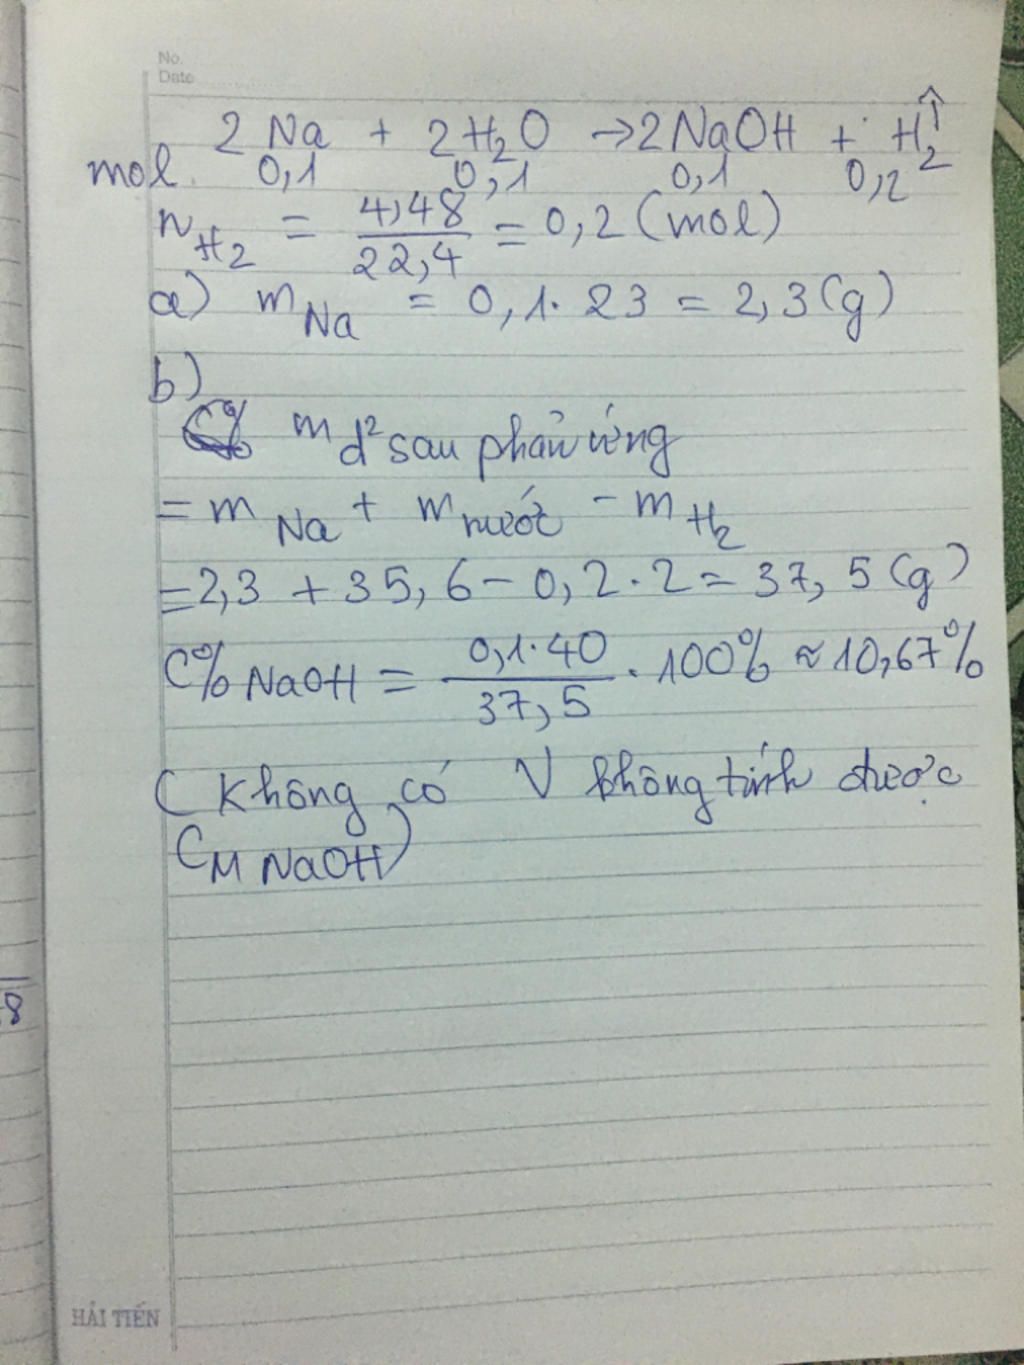 No.
Date
2 Na + 2 H₂O → 2 NaOH + H₂↑
mol. 0,1 0,1 0,1 0,2
n H₂ = 4,48/22,4 = 0,2 (mol)
a) m Na = 0,1 . 23 = 2,3 (g)
b)
m d² sau phản ứng
= m Na + m nước - m H₂
= 2,3 + 35,6 - 0,2 . 2 = 37,5 (g)
C% NaOH = 0,1 . 40/37,5 . 100% ≈ 10,67%
( Không có V không tính được
C M NaOH )
8
HẢI TIẾN